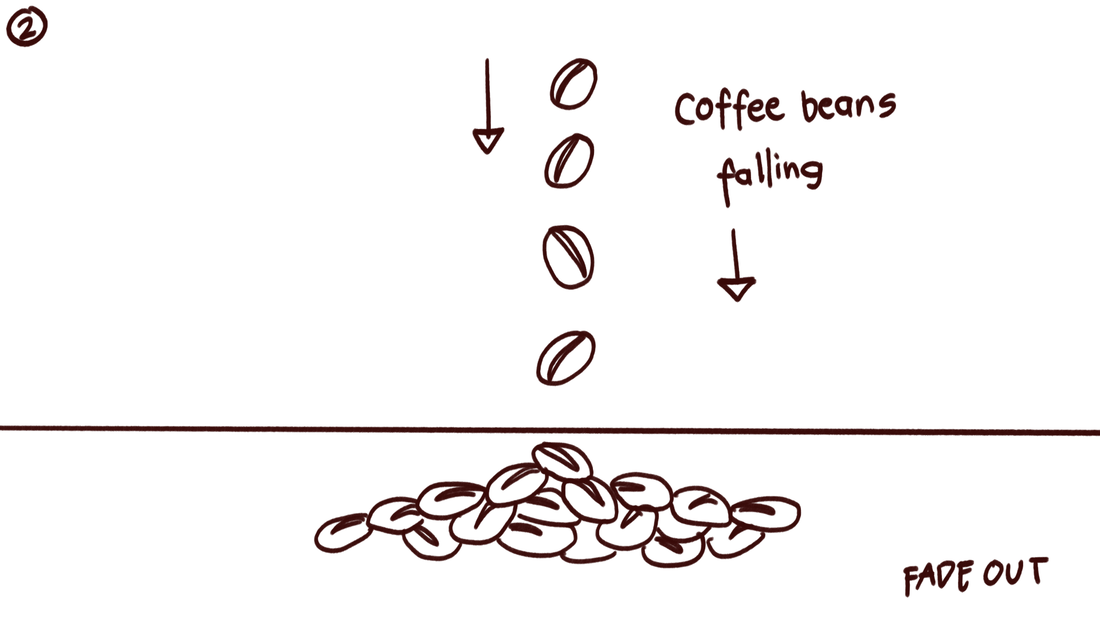 2
Coffee beans
falling
FADE OUT